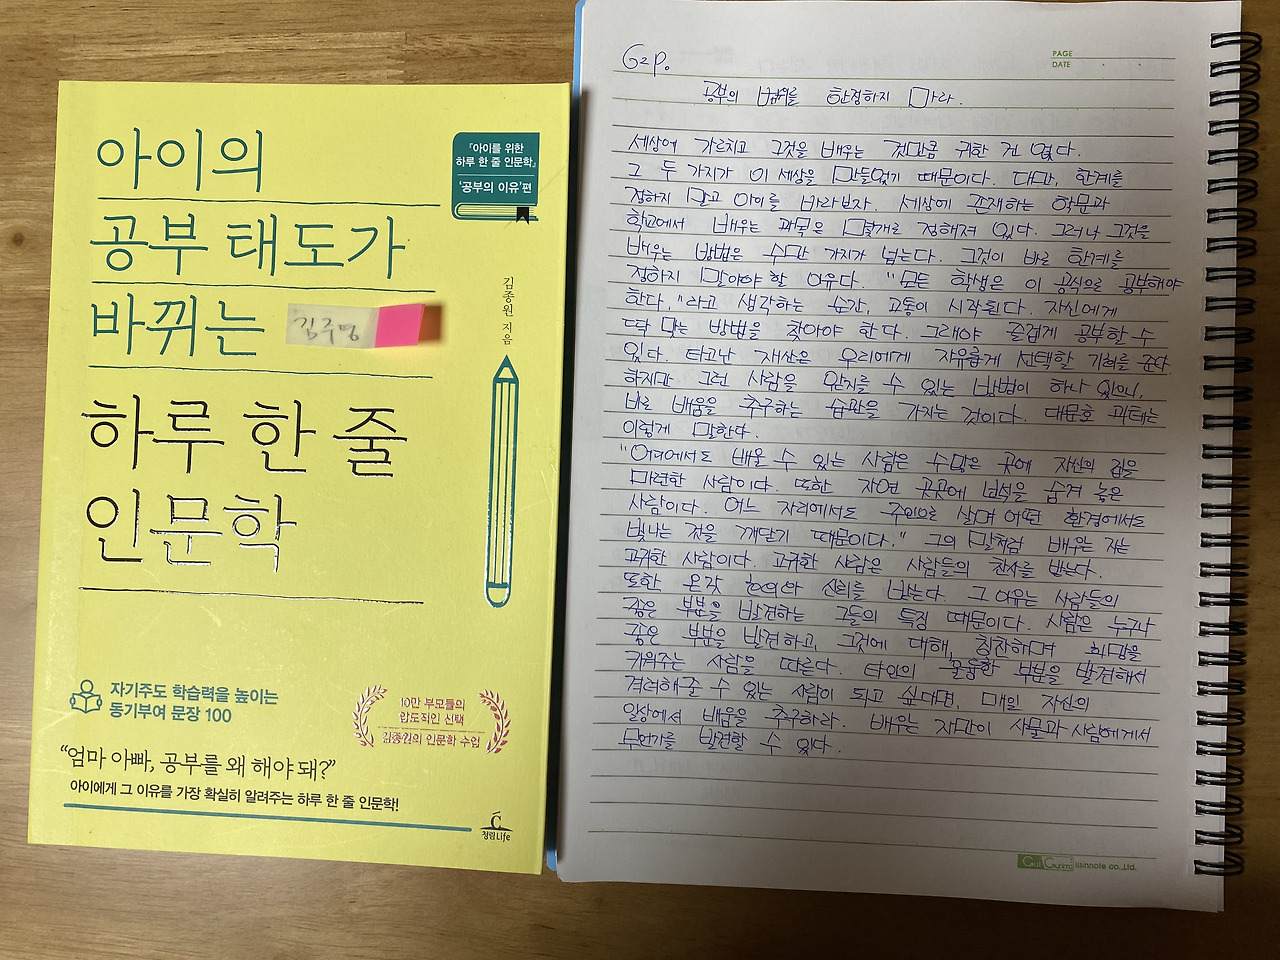 아이의
공부 태도가
바뀌는
하루 한 줄
인문학
『아이를 위한
하루 한 줄 인문학』
'공부의 이유'편
김종원 지음
김주명
자기주도 학습력을 높이는
동기부여 문장 100
10만 부모들의
압도적인 선택
김종원의 인문학 수업
"엄마 아빠, 공부를 왜 해야 돼?"
아이에게 그 이유를 가장 확실히 알려주는 하루 한 줄 인문학!
청림Life
PAGE
DATE
62p.
공부의 범위를 한정하지 마라.
세상에 가르치고 그것을 배우는 것만큼 귀한 건 없다.
그 두 가지가 이 세상을 만들었기 때문이다. 다만, 한계를
정하지 말고 아이를 바라보자. 세상에 존재하는 학문과
학교에서 배우는 과목은 몇개로 정해져 있다. 그러나 그것을
배우는 방법은 수만 가지가 넘는다. 그것이 바로 한계를
정하지 말아야 할 이유다. "모든 학생은 이 공식으로 공부해야
한다,"라고 생각하는 순간, 고통이 시작된다. 자신에게
딱 맞는 방법을 찾아야 한다. 그래야 즐겁게 공부할 수
있다. 타고난 재산은 우리에게 자유롭게 선택할 기회를 준다.
하지만 그런 사람을 앞지를 수 있는 방법이 하나 있으니,
바로 배움을 추구하는 습관을 가지는 것이다. 대문호 괴테는
이렇게 말한다.
"어디에서도 배울 수 있는 사람은 수많은 곳에 자신의 집을
마련한 사람이다. 또한 자연 곳곳에 보석을 숨겨 놓은
사람이다. 어느 자리에서도 주인으로 살며 어떤 환경에서도
빛나는 것을 깨닫기 때문이다." 그의 말처럼 배우는 자는
고귀한 사람이다. 고귀한 사람은 사람들의 찬사를 받는다.
또한 온갖 호의와 신뢰를 받는다. 그 이유는 사람들의
깊은 부분을 발견하는 그들의 특징 때문이다. 사람은 누구나
깊은 부분을 발견하고, 그것에 대해, 칭찬하며 희망을
키워주는 사람을 따른다. 타인의 훌륭한 부분을 발견해서
격려해줄 수 있는 사람이 되고 싶다면, 매일 자신의
일상에서 배움을 추구하라. 배우는 자만이 사물과 사람에게서
무언가를 발견할 수 있다.
Ilsinnote co.,Ltd.